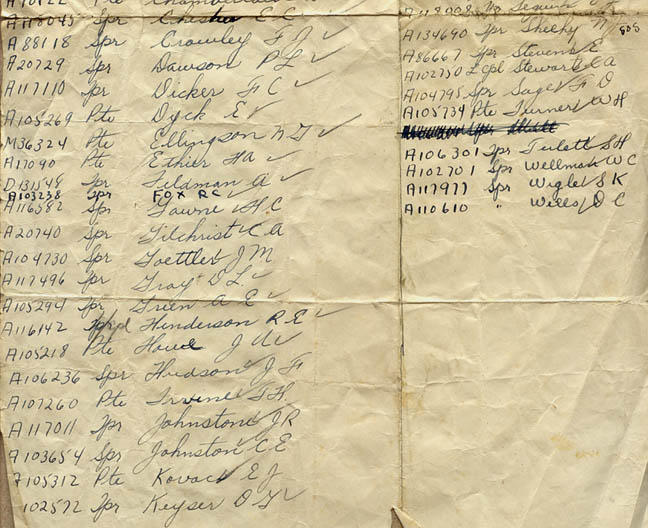 Pte
A118045 Spr Chesher E C
A88118 Spr Crowley F J ✓
A20729 Spr Dawson P L ✓
A117110 Spr Dicker F C ✓
A105269 Pte Dyck E ✓
M36324 Pte Ellingson N J ✓
A17090 Pte Ethier H A ✓
D131548 Spr Feldman A ✓
A103238 Spr FOX R C ✓
A116582 Spr H C
A20740 Spr Gilchrist C A
A104730 Spr Goettler J M
A117496 Spr Gray D L ✓
A105294 Spr Green A E ✓
A116142 Henderson R E ✓
A105218 Pte J A ✓
A106236 Spr Hudson J F
A107260 Pte Irvine F H
A117011 Spr Johnstone J R
A103654 Spr Johnston C E
A105312 Pte Kovach E J
102572 Spr Keyser O G ✓
Seguin
A134690 Spr Sheehy
A86667 Spr Stevens E
A102750 L cpl Stewart C A
A104795 Spr Sage F D
A105734 Pte Turner W H
A106301 Spr S H
A102701 Spr Wellman W C
A117977 Spr Wigle S K
A110610 " Wells O C